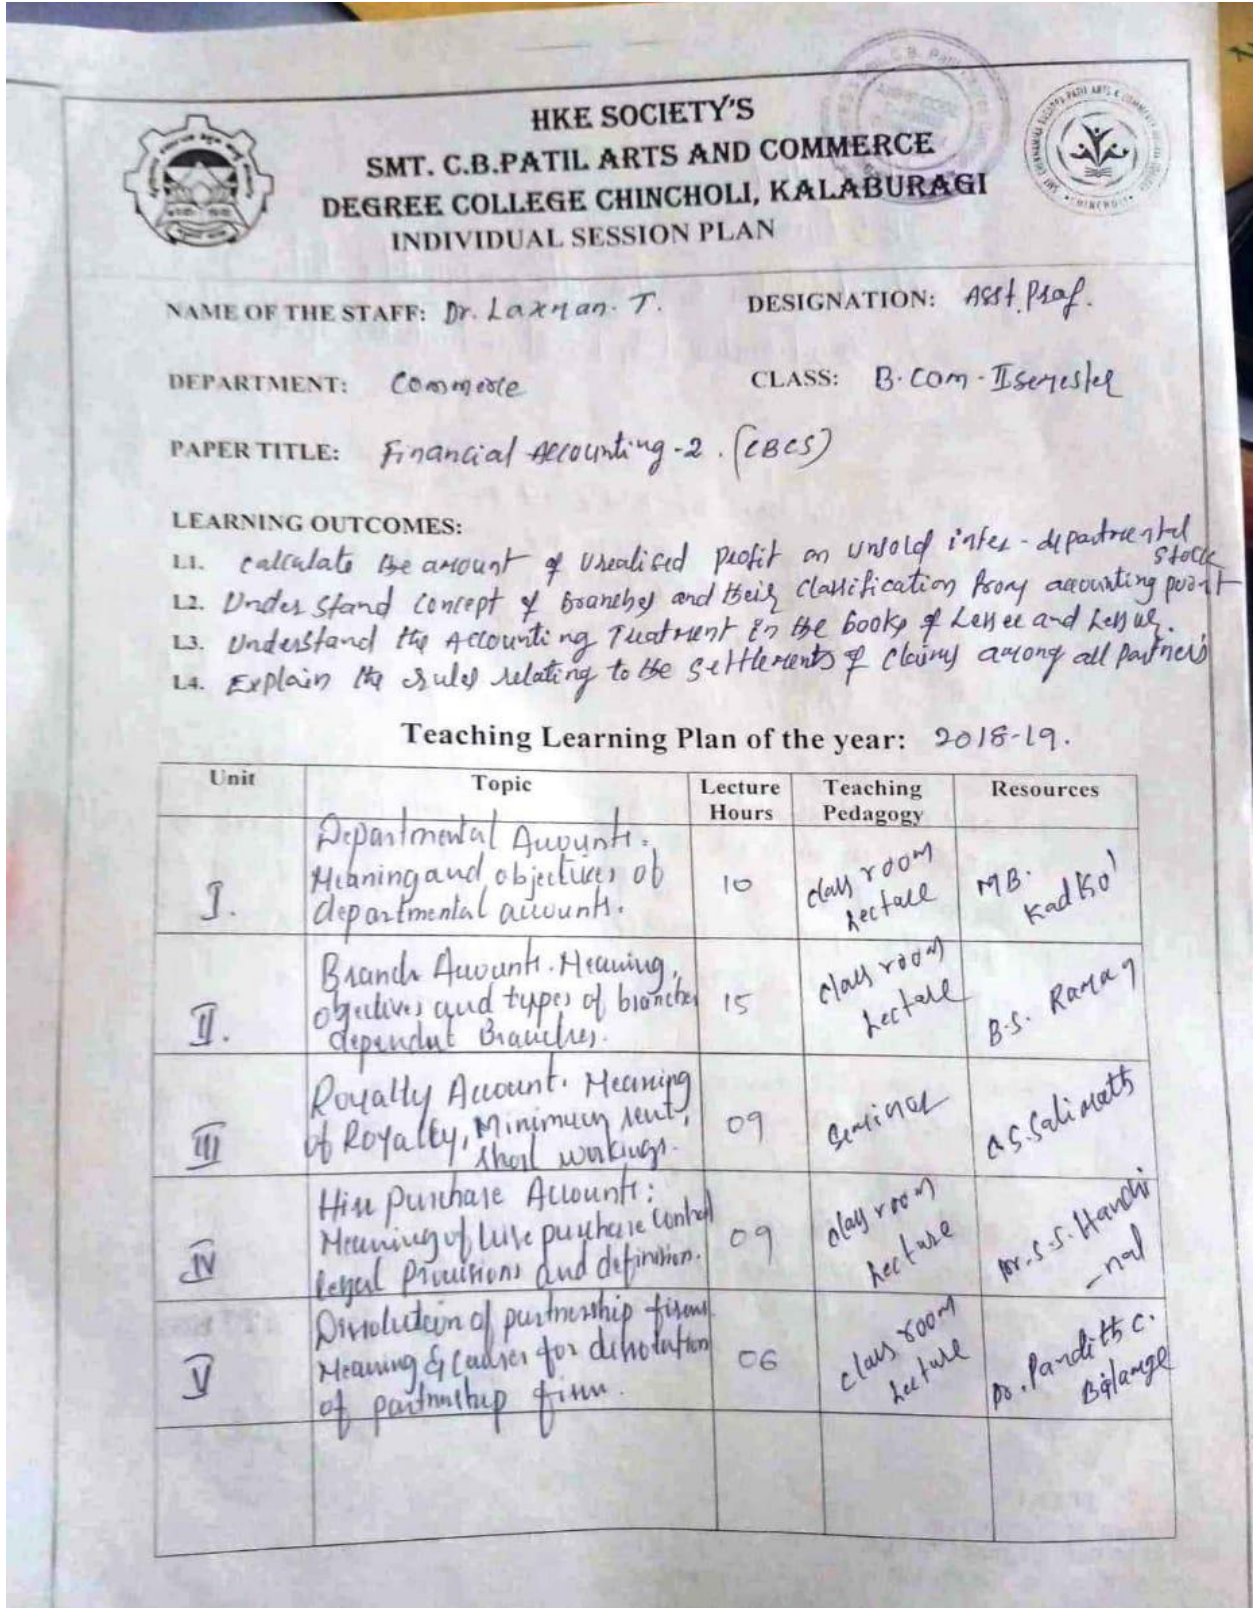 HKE SOCIETY'S
SMT. C.B.PATIL ARTS AND COMMERCE
DEGREE COLLEGE CHINCHOLI, KALABURAGI
INDIVIDUAL SESSION PLAN
NAME OF THE STAFF: Dr. Laxman. T. DESIGNATION: Asst. Prof.
DEPARTMENT: Commerce CLASS: B.Com - II semester
PAPER TITLE: Financial Accounting -2. (CBCS)
LEARNING OUTCOMES:
L1. Calculate the amount of Unrealised Profit on unsold inter-departmental stock
L2. Understand concept of branches and their classification from accounting point
L3. Understand the Accounting Treatment in the books of Lessee and Lessor.
L4. Explain the rules relating to the Settlements of claims among all partners
Teaching Learning Plan of the year: 2018-19.
Unit Topic Lecture Hours Teaching Pedagogy Resources
Departmental Accounts.
Meaning and objectives of
departmental accounts.
I. 10 class room Lecture M.B. Kadkol
Branch Accounts. Meaning,
objectives and types of branches
dependent Branches.
II. 15 class room Lecture B.S. Raman
Royalty Account. Meaning
of Royalty, Minimum rent,
short workings.
III 09 Seminar
Hire purchase Accounts:
Meaning of hire purchase
legal provisions and definition.
IV 09 class room Lecture Dr. S.S. Handi-nal
Dissolution of partnership firms
Meaning & causes for dissolution
of partnership firm.
V 06 class room Lecture Dr. Pandith C.